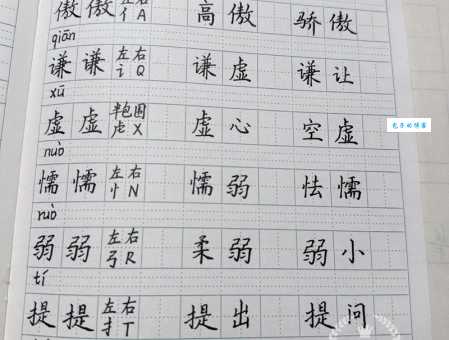 傲 傲 左右 亻A 高傲 骄傲
qiān
谦 谦 左右 讠Q 谦虚 谦让
xū
虚 虚 半包围 虍X 虚心 空虚
nuò
懦 懦 左右 忄N 懦弱 怯懦
ruò
弱 弱 左右 弓R 柔弱 弱小
tí
提 提 左右 扌T 提出 提问